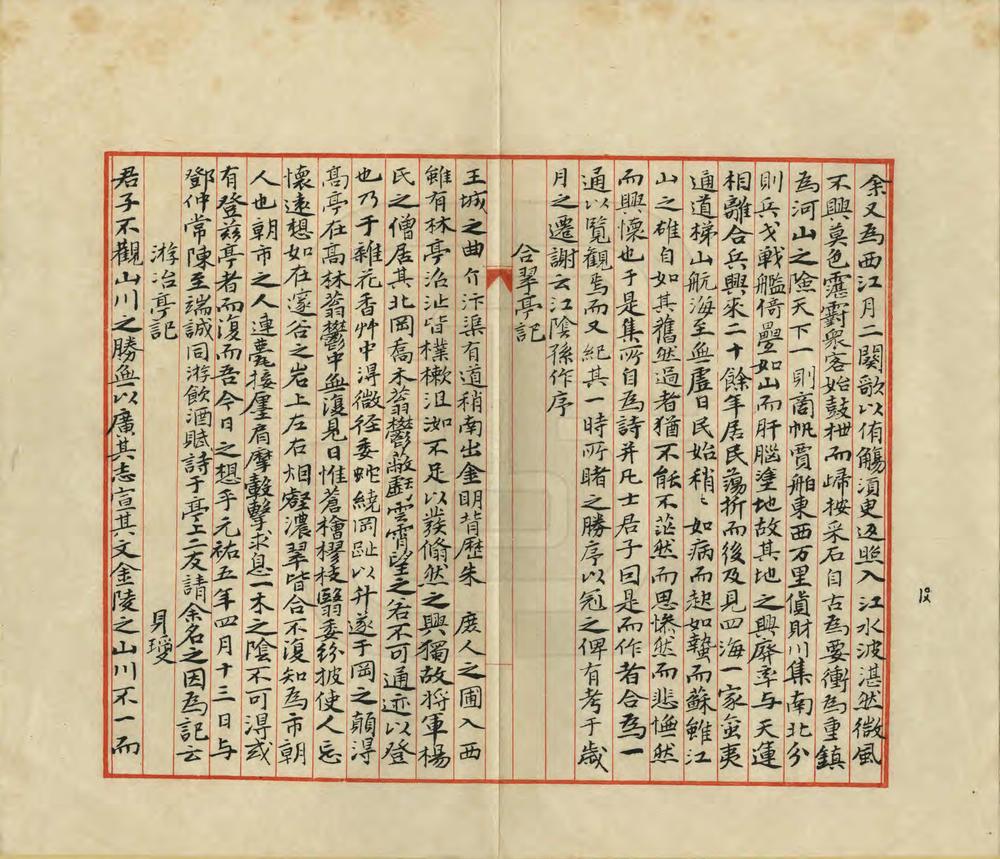 余又為西江月二闋歌以侑觴須臾返照入江水波湛然微風
不興莫色靄霨衆客始鼓枻而歸按采石自古為要衝為重鎮
為河山之險天下一則商帆賈舶東西万里貨財川集南北分
則兵戈戰艦倚疊如山而肝腦塗地故其地之興廢率与天運
相離合兵興來二十餘年居民蕩折而後及見四海一家蛮夷
通道梯山航海至無虛日民始稍〻如病而起如蟄而蘇雖江
山之碓自如其舊然過者猶不能不茫然而思惨然而悲憮然
而興懷也于是集所自為詩并凡士居子因是而作者合為一
通以覽觀焉而又紀其一時所睹之勝序以冠之俾有考于歲
月之遷謝云江陰孫作序
合翠亭記
王城之曲介汴渠有道稍南出金明背歷朱 庶人之圃入西
雖有林亭沼沚皆樸樕沮洳不足以發翛然之興獨故將軍楊
氏之僧居其北岡喬木蓊鬱蔽虧雲霄望之若不可通亦以登
也乃于雜花香艸中得微徑委蛇繞岡趾以升遂于岡之顛得
高亭在高林蓊鬱中無復見日惟蒼檜樛枝翳委紛披使人忘
懷遠想如在邃谷之岩上左右烟壑濃翠皆合不復知為市朝
人也朝市之人連甍接屋肩摩轂擊求息一木之陰不可得或
有登茲亭者而復而吾今日之想乎元祐五年四月十三日与
鄧仲常陳至端誠同游飲酒賦詩于亭上二友請余名之因為記云
游冶亭記 貝瓊
君子不觀山川之勝無以廣其志宣其文金陵之山川不一而